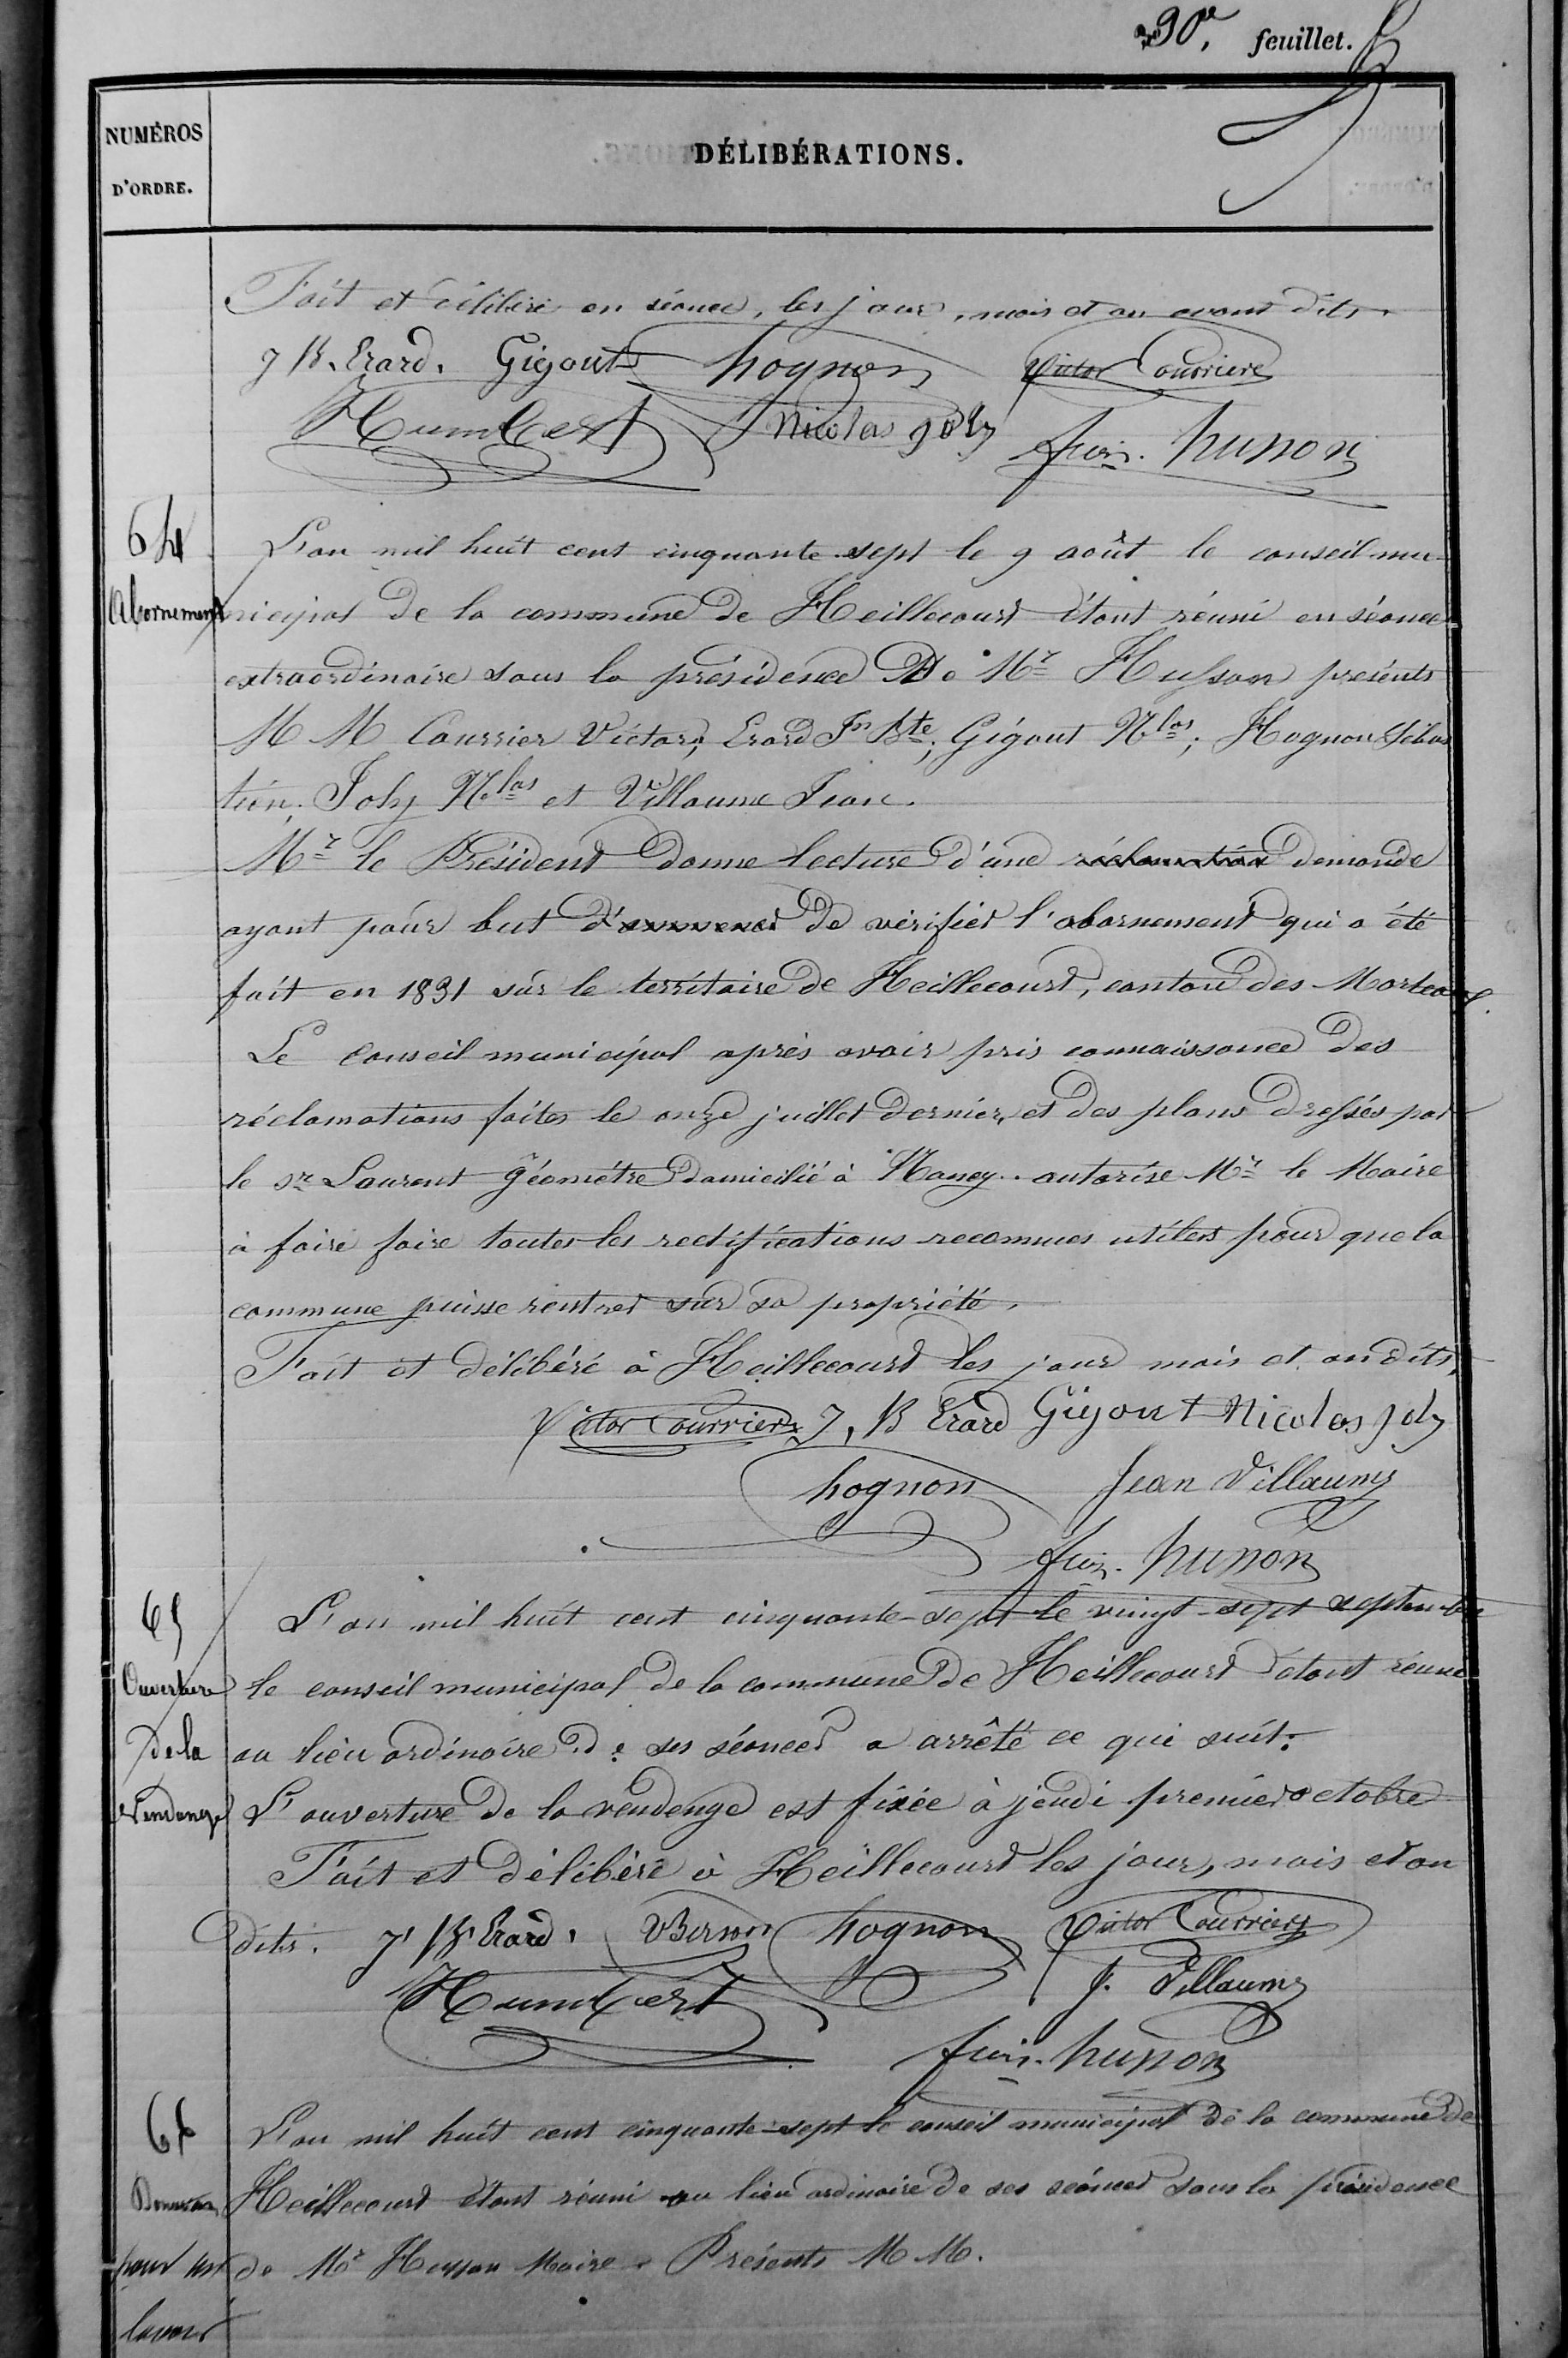 90e, feuillet.
NUMÉROS
D'ORDRE.
DÉLIBÉRATIONS.
Fait et délibéré en séance, les jour, mois et an avant dits.
J B. Erard. Gigout hognon Victor Courrier
Humbert Nicolas joly
husson
64
Abornement
L'an mil huit cent cinquante-sept le 9 août le conseil mu-
nicipal de la commune de Heillecourt étant réuni en séance
extraordinaire sous la présidence De Mr Husson présents
M M Courrier Victor; Erard Jn Bte; Gigout Nlas; Hognon Sébas
tien; Joly Nlas et Villaume Jean.
Mr le Président donne lecture d'une réclamation demande
ayant pour but de vérifier l'abornement qui a été
fait en 1831 sur le territoire de Heillecourt, canton des
Le Conseil municipal après avoir pris connaissance des
réclamations faites le onze juillet dernier, et des plans dressés par
le sr Laurent géomètre domicilié à Nancy. autorise Mr le Maire
à faire faire toutes les rectifications reconnues utiles pour que la
commune puisse rentrer sur sa propriété.
Fait et délibéré à Heillecourt les jour mois et an dits,
Victor Courrier J, B Erard Gigout Nicolas joly
hognon Jean Villaume
husson
65
Ouverture
de la
Vendange
L'an mil huit cent cinquante-sept le vingt-sept septembre
le conseil municipal de la commune de Heillecourt étant réuni
au lieu ordinaire de ses séances a arrêté ce qui suit:
L'ouverture de la vendenge est fixée à jeudi premier octobre
Fait et délibéré à Heillecourt les jour, mois et an
dits. J B Erard. hognon Victor Courrier
Humbert J. Villaume
husson
66
pour un
lavoir
L'an mil huit cent cinquante-sept le conseil municipal de la commune de
Heillecourt étant réuni au lieu ordinaire de ses séances sous la présidence
de Mr Husson Maire. Présents M M.